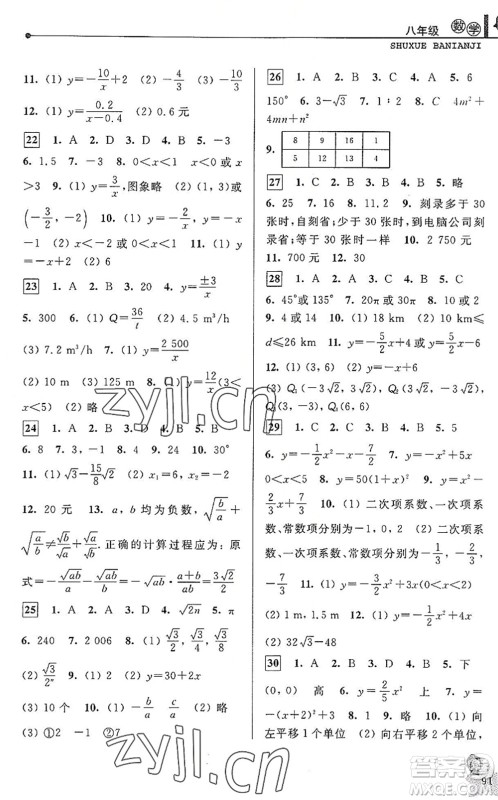 八年级 数学
SHUXUE BANIANJI
11. (1) y=-10/x+2 (2) -4/3 (3) -10/3
12. (1) y=0.2/(x-0.4) (2) 0.6 元
22 1. A 2. D 3. D 4. B 5. -3
6. 1.5 7. -3 8. 0<x<1 或 x
>3 9. (1) y=3/x, 图象略 (2)
(-3/2, -2) 10. (1) y=-2/x, y=x
-1 (2) x<-2 或 0<x<1
11. (1) y=-6/x (2) 略
23 1. A 2. B 3. A 4. y=±3/x
5. 300 6. (1) Q=36/t (2) 4.5 m³/h
(3) 7.2 m³/h 7. (1) y=2 500/x
(2) 10 m (3) 125 m 8. (1) y=12/x(3<
x<5) (2) 略
24 1. A 2. A 3. D
6. 8 7. 3, -1 8. 6 9. 24 10. 30°
11. (1) √3-15/8√2 (2) x₁=6, x₂=-2
12. 20 元 13. a, b 均为负数, √(a/b)≠√a/√b
+√(a/b)≠√a/√b. 正确的计算过程应为: 原
式=-√ab/a-√ab/b=-√ab·(a+b)/ab=3√2/2
25 1. A 2. D 3. C 4. √2n 5. π
6. 240 7. 2 006 8. (1) √3/2, √3/4
(2) √3/2ⁿ 9. (1) (2) y=30+2x
(3) 10 个 10. (1) -b/a c/a (2) 略
(3) ①-1 ②7
26 1. A 2. B 3. A 4. A 5. 6
150° 6. 3-√3 7. 1∶2 8. C 4m²+
4mn+n²
9. 8 9 16 1
5 12 13 4
27 1. C 2. B 3. B 4. B 5. 略
6. 25 7. 16 8. ±1 9. 刻录多于 30
张时, 自刻省; 少于 30 张时, 到电脑公司刻
录省; 等于 30 张时一样 10. 2 750 元
11. 700 元 12. 略
28 1. A 2. C 3. D 4. A 5. D
6. 45°或135° 7. 20π或30π 8. 10或2
9. 4 或 14 10. (1) 18 km (2) 10≤
d≤26 km 11. y=-5/2x+4或y=5/2x-6
12. (1) (3, 6) (2) Q(-3, 6)
(3) Q₁(-3√2, 3√2), Q₂(3√2, -3√2),
Q₃(6, 6)
29 1. B 2. C 3. A 4. B 5. C
6. y=-1/2x²-x-7/2 7. y=-x²+5x,
0<x<5 8. y=50(1+x)² 9. y=
2/3x+7/3 10. (1) 二次项系数、一次项系
数、常数项分别为-1, 0, 2 (2) 二次项
系数、一次项系数、常数项分别为 0, 2/3,
-7/3 11. (1) y=-2x²+6x(0<x<3)
(2) 1, 1.5 m 12. (1) y=-1/2x²+4x
(2) 32√3-48
30 1. A 2. A 3. A 4. B 5. 下
(0, 0) 高 6. y=2/5x² 上 7. y=
-(x+2)²+3 8. C 9. D 10. (1) 向
左平移 2 个单位 (2) 向右平移 1 个单位
91
zyjl.cn
答案圈